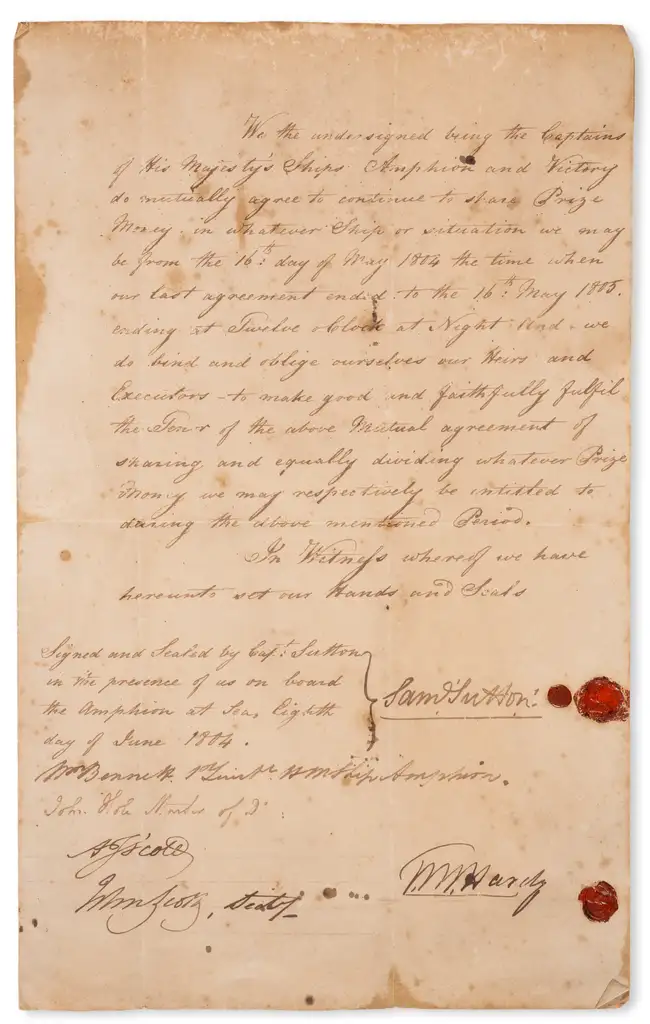 We the undersigned being the Captains
of His Majesty's Ships Amphion and Victory
do mutually agree to continue to share Prize
Money in whatever Ship or situation we may
be from the 16th. day of May 1804 the time when
our last agreement ended to the 16th. May 1805.
ending at Twelve oClock at Night And we
do bind and oblige ourselves our Heirs and
Executors - to make good and faithfully fulfil
the Tenor of the above Mutual agreement of
sharing and equally dividing whatever Prize
Money we may respectively be intitled to
during the above mentioned Period.
In Witness whereof we have
hereunto set our Hands and Seals
Signed and Sealed by Capt. Sutton
in the presence of us on board
the Amphion at Sea, Eighth
day of June 1804.
Saml Sutton.
Wm Bennett. 1st Lieut. HM Ship Amphion.
John of Do.
AJ Scott
T.M. Hardy
John Scott, Secty